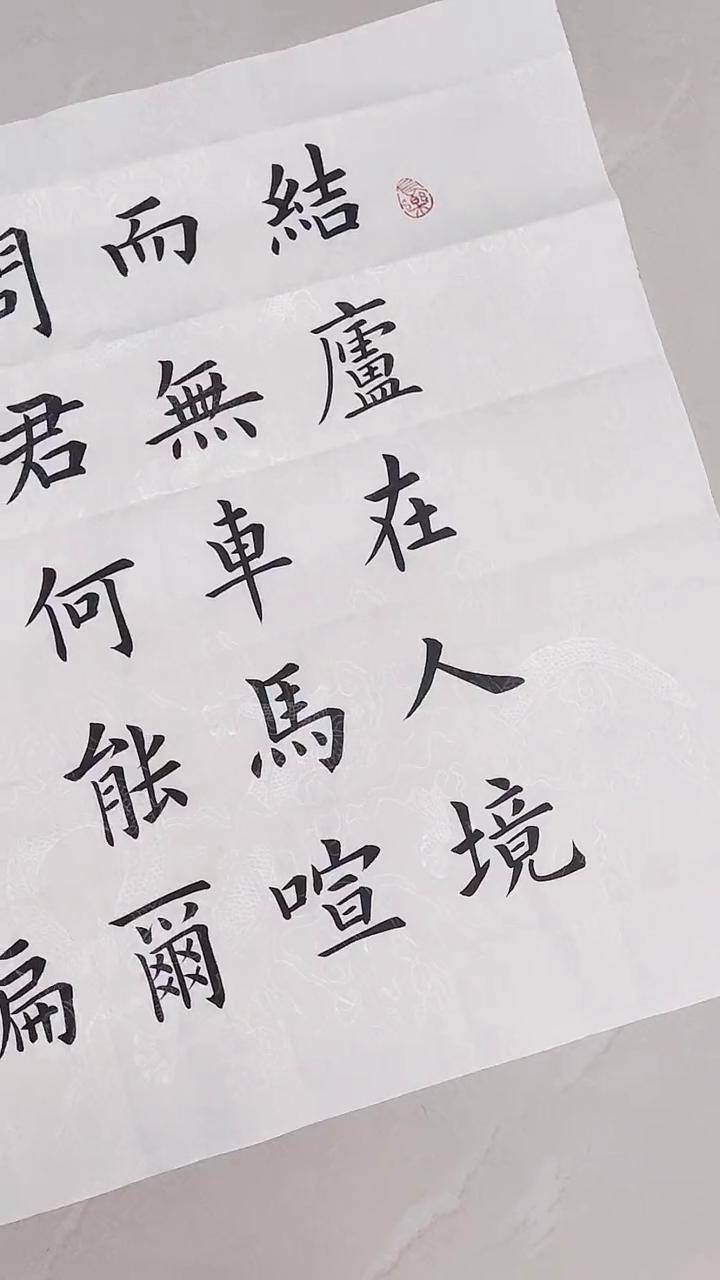 結廬在人境
而無車馬喧
問君何能爾
偏